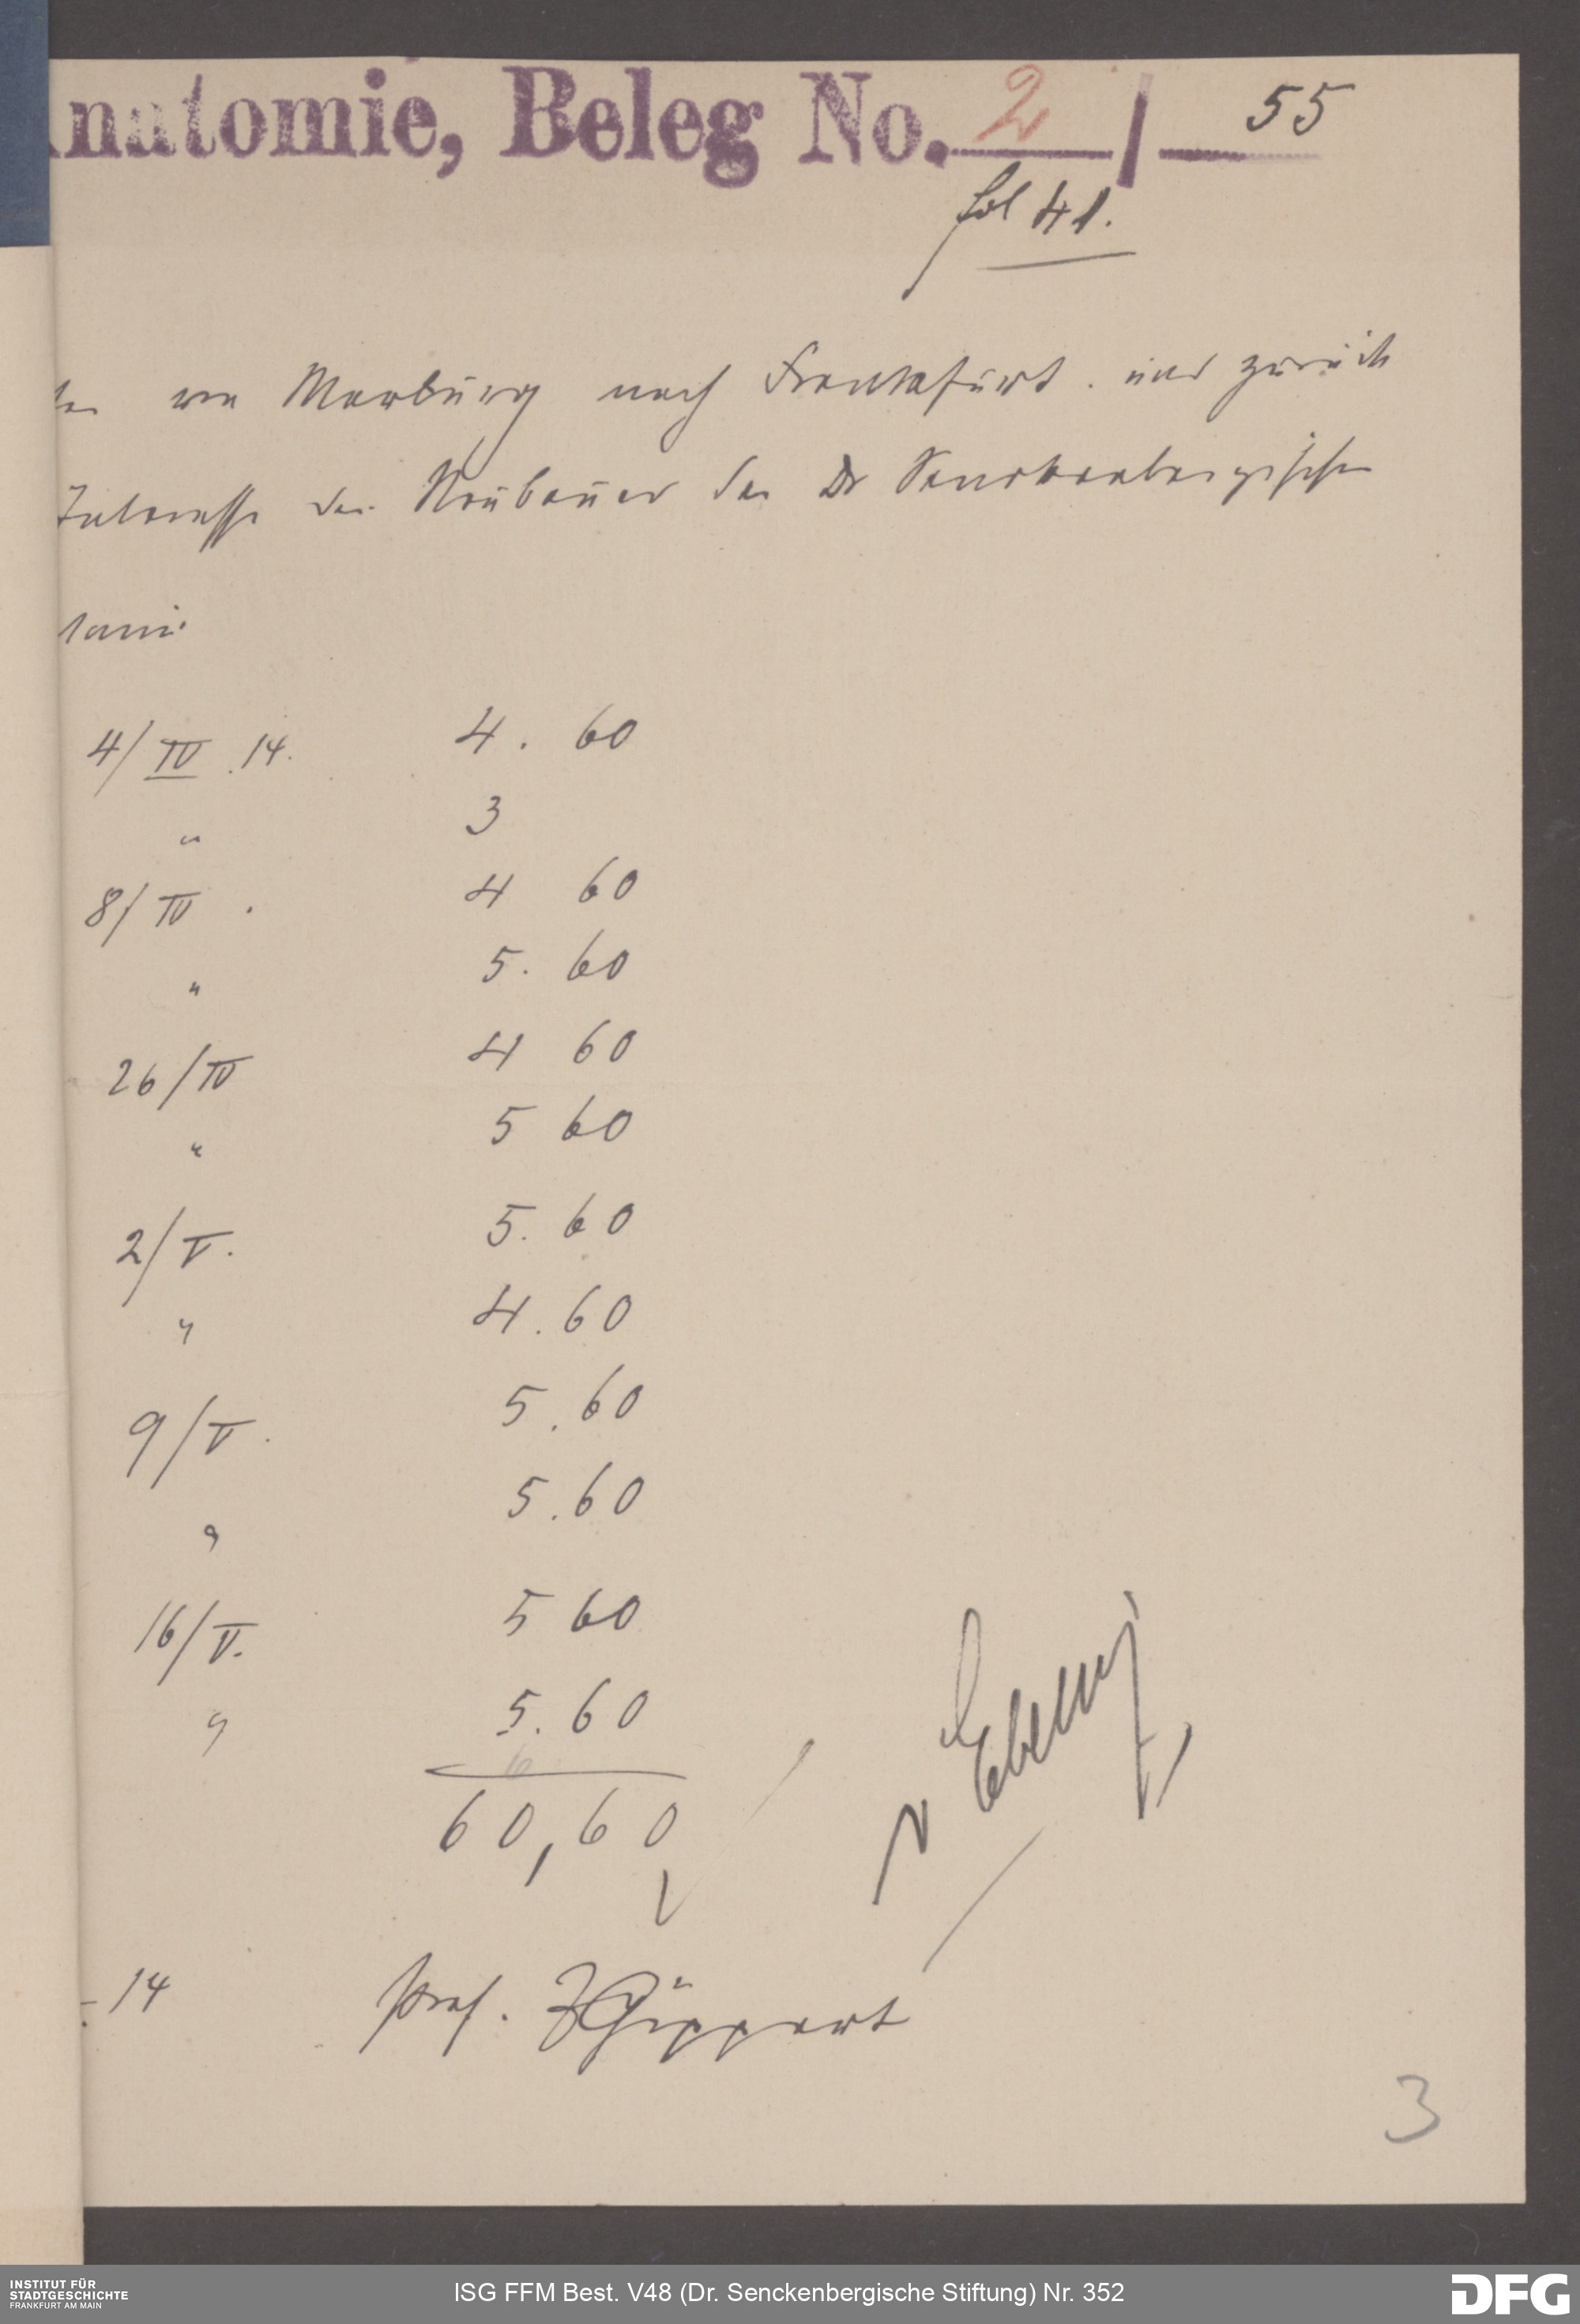 natomie, Beleg No. 2 / 55
fol 41.
von Marburg nach Frankfurt. und zurück
Interesse des Neubaues der Dr Senckenbergischen
tomie
4/IV .14. 4. 60
" 3
8/IV . 4 60
" 5. 60
26/IV 4 60
" 5 60
2/V. 5. 60
" 4. 60
9/V. 5. 60
" 5. 60
16/V. 5 60
" 5. 60
60,60
14 Prof. Göppert
3
INSTITUT FÜR
STADTGESCHICHTE
FRANKFURT AM MAIN
ISG FFM Best. V48 (Dr. Senckenbergische Stiftung) Nr. 352
DFG